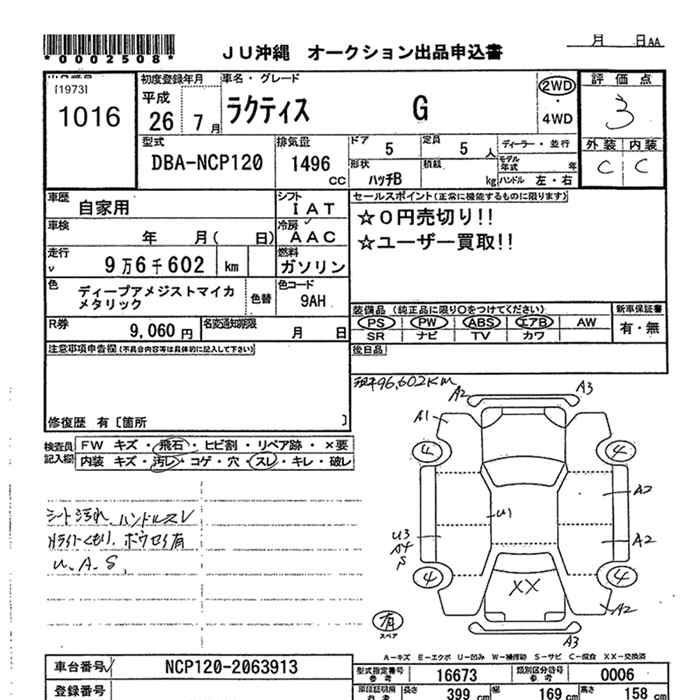 *0002508*
JU沖縄 オークション出品申込書
月 日AA
[1973]
1016
初度登録年月
平成
26 7月
車名・グレード
ラクティス G
2WD
・
4WD
評価点
3
外装 内装
C C
型式
DBA-NCP120
排気量
1496
cc
ドア
5
定員
5人
ディーラー・並行
形状
ハッチB
積載
kg
モデル年式 年
ハンドル 左・右
車歴
自家用
シフト
IAT
車検
年 月( 日)
冷房
AAC
走行
9万6千602 km
燃料
ガソリン
色
ディープアメジストマイカ
メタリック
色替
色コード
9AH
R券
9,060円
名変通知期限
月 日
セールスポイント(正常に機能するものに限ります)
☆0円売切り!!
☆ユーザー買取!!
装備品(純正品に限り○をつけてください)
PS PW ABS エアB AW
SR ナビ TV カワ
新車保証書
有・無
後日品
注意事項申告欄(不具合内容等は具体的に記入して下さい)
修復歴 有〔箇所 〕
検査員
記入欄
FW キズ・飛石・ヒビ割・リペア跡・×要
内装 キズ・汚レ・コゲ・穴・スレ・キレ・破レ
シート汚れ、ハンドルスレ
U、A、S、
96,602KM
A2
A3
A1
4
4
A2
U1
U3
A4
S
A2
4
4
XX
A2
A3
有
スペア
A-キズ E-エクボ U-凹み W-補修跡 S-サビ C-腐食 XX-交換済
車台番号
NCP120-2063913
登録番号
型式指定番号
参考
16673
類別区分番号
参考
0006
長さ
399 cm
幅
169 cm
高さ
158 cm